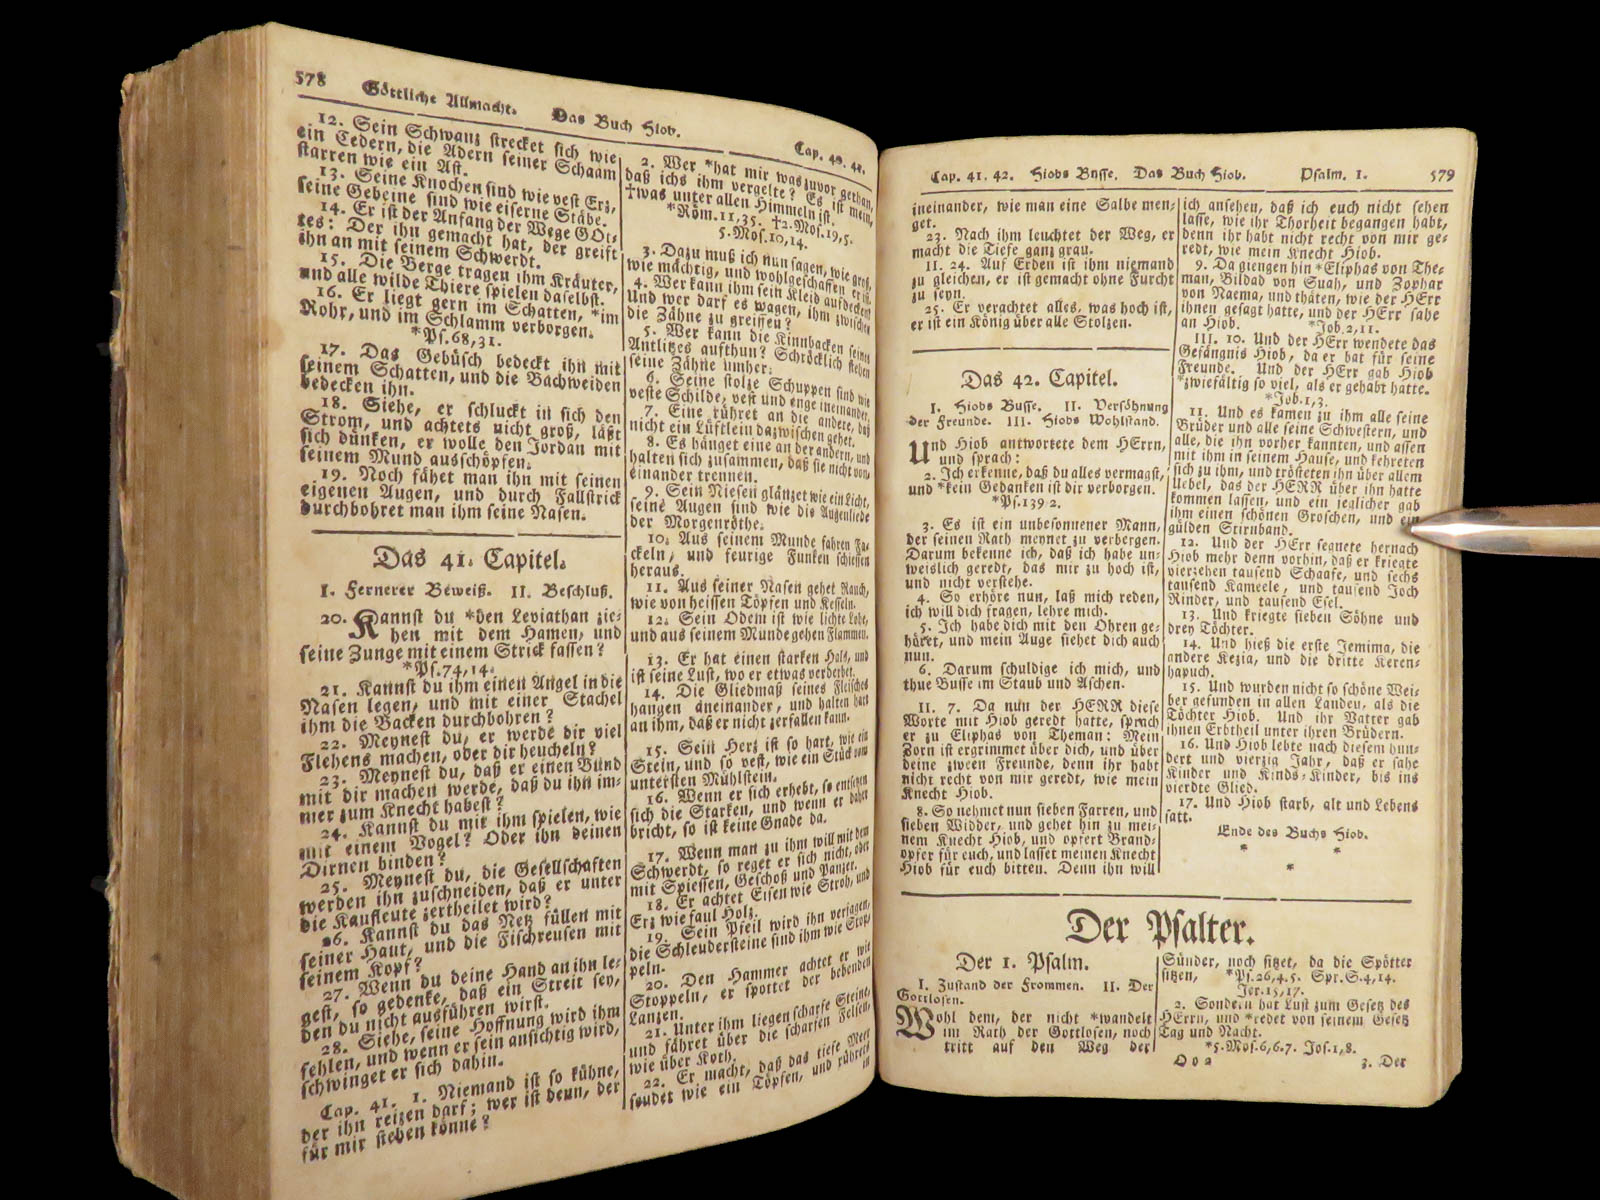 578 Göttliche Allmacht. Das Buch Hiob. Cap. 40. 41.
12. Sein Schwanz strecket sich wie
ein Cedern, die Adern seiner Schaam
starren wie ein Ast.
13. Seine Knochen sind wie vest Erz,
seine Gebeine sind wie eiserne Stäbe.
14. Er ist der Anfang der Wege GOt-
tes: Der ihn gemacht hat, der greift
ihn an mit seinem Schwerdt.
15. Die Berge tragen ihm Kräuter,
und alle wilde Thiere spielen daselbst.
16. Er liegt gern im Schatten, *im
Rohr, und im Schlamm verborgen.
*Ps. 68,31.
17. Das Gebüsch bedeckt ihn mit
seinem Schatten, und die Bachweiden
bedecken ihn.
18. Siehe, er schluckt in sich den
Strom, und achtets nicht groß, läßt
sich dünken, er wolle den Jordan mit
seinem Mund ausschöpfen.
19. Noch fähet man ihn mit seinen
eigenen Augen, und durch Fallstrick
durchbohret man ihm seine Nasen.
Das 41. Capitel.
I. Fernerer Beweiß. II. Beschluß.
20. Kannst du *den Leviathan zie-
hen mit dem Hamen, und
seine Zunge mit einem Strick fassen?
*Ps. 74,14.
21. Kannst du ihm einen Angel in die
Nasen legen, und mit einer Stachel
ihm die Backen durchbohren?
22. Meynest du, er werde dir viel
Flehens machen, oder dir heucheln?
23. Meynest du, daß er einen Bund
mit dir machen werde, daß du ihn im-
mer zum Knecht habest?
24. Kannst du mit ihm spielen, wie
mit einem Vogel? Oder ihn deinen
Dirnen binden?
25. Meynest du, die Gesellschaften
werden ihn zuschneiden, daß er unter
die Kaufleute zertheilet wird?
26. Kannst du das Netz füllen mit
seiner Haut, und die Fischreusen mit
seinem Kopf?
27. Wenn du deine Hand an ihn le-
gest, so gedenke, daß ein Streit sey,
den du nicht ausführen wirst.
28. Siehe, seine Hoffnung wird ihm
fehlen, und wenn er sein ansichtig wird,
schwinget er sich dahin.
Cap. 41. 1. Niemand ist so kühne,
der ihn reizen darf; wer ist denn, der
für mir stehen könne?
2. Wer *hat mir was zuvor gethan,
daß ichs ihm vergelte? Es ist mein,
†was unter allen Himmeln ist.
*Röm. 11,35. †2. Mos. 19,5.
5. Mos. 10,14.
3. Dazu muß ich nun sagen, wie groß,
wie mächtig, und wohlgeschaffen er ist.
4. Wer kann ihm sein Kleid aufdecken?
Und wer darf es wagen, ihm zwischen
die Zähne zu greiffen?
5. Wer kann die Kinnbacken seines
Antlitzes aufthun? Schröcklich stehen
seine Zähne umher.
6. Seine stolze Schuppen sind wie
veste Schilde, vest und enge ineinander.
7. Eine rühret an die andere, daß
nicht ein Lüftlein dazwischen gehet.
8. Es hänget eine an der andern, und
halten sich zusammen, daß sie nicht von-
einander trennen.
9. Sein Niesen glänzet wie ein Licht,
seine Augen sind wie die Augenliede
der Morgenröthe.
10. Aus seinem Munde fahren Fa-
ckeln, und feurige Funken schiessen
heraus.
11. Aus seiner Nasen gehet Rauch,
wie von heissen Töpfen und Kesseln.
12. Sein Odem ist wie lichte Lohe,
und aus seinem Munde gehen Flammen.
13. Er hat einen starken Hals, und
ist seine Lust, wo er etwas verderbet.
14. Die Gliedmaß seines Fleisches
hangen aneinander, und halten hart
an ihm, daß er nicht zerfallen kann.
15. Sein Herz ist so hart, wie ein
Stein, und so vest, wie ein Stück vom
untersten Mühlstein.
16. Wenn er sich erhebt, so entsetzen
sich die Starken, und wenn er daher
bricht, so ist keine Gnade da.
17. Wenn man zu ihm will mit dem
Schwerdt, so reget er sich nicht, oder
mit Spiessen, Geschoß und Panzer.
18. Er achtet Eisen wie Stroh, und
Erz wie faul Holz.
19. Sein Pfeil wird ihn verjagen,
die Schleudersteine sind ihm wie Stop-
peln.
20. Den Hammer achtet er wie
Stoppeln, er spottet der bebenden
Lanzen.
21. Unter ihm liegen scharfe Steine,
und fähret über die scharfen Felsen,
wie über Koth.
22. Er macht, daß das tiefe Meer
seudet wie ein Töpfen, und rührets
in
Cap. 41. 42. Hiobs Busse. Das Buch Hiob. Psalm. 1. 579
ineinander, wie man eine Salbe men-
get.
23. Nach ihm leuchtet der Weg, er
macht die Tiefe ganz grau.
II. 24. Auf Erden ist ihm niemand
zu gleichen, er ist gemacht ohne Furcht
zu seyn.
25. Er verachtet alles, was hoch ist,
er ist ein König über alle Stolzen.
Das 42. Capitel.
I. Hiobs Busse. II. Versöhnung
der Freunde. III. Hiobs Wohlstand.
Und Hiob antwortete dem HErrn,
und sprach:
2. Ich erkenne, daß du alles vermagst,
und *kein Gedanken ist dir verborgen.
*Ps. 139 2.
3. Es ist ein unbesonnener Mann,
der seinen Rath meynet zu verbergen.
Darum bekenne ich, daß ich habe un-
weislich geredt, das mir zu hoch ist,
und nicht verstehe.
4. So erhöre nun, laß mich reden,
ich will dich fragen, lehre mich.
5. Ich habe dich mit den Ohren ge-
höret, und mein Auge siehet dich auch
nun.
6. Darum schuldige ich mich, und
thue Busse im Staub und Aschen.
II. 7. Da nun der HERR diese
Worte mit Hiob geredt hatte, sprach
er zu Eliphas von Theman: Mein
Zorn ist ergrimmet über dich, und über
deine zween Freunde, denn ihr habt
nicht recht von mir geredt, wie mein
Knecht Hiob.
8. So nehmet nun sieben Farren, und
sieben Widder, und gehet hin zu mei-
nem Knecht Hiob, und opfert Brand-
opfer für euch, und lasset meinen Knecht
Hiob für euch bitten. Denn ihn will
ich ansehen, daß ich euch nicht sehen
lasse, wie ihr Thorheit begangen habt,
denn ihr habt nicht recht von mir ge-
redt, wie mein Knecht Hiob.
9. Da giengen hin *Eliphas von The-
man, Bildad von Suah, und Zophar
von Naema, und thäten, wie der HErr
ihnen gesagt hatte, und der HErr sahe
an Hiob. *Job. 2,11.
III. 10. Und der HErr wendete das
Gefängnis Hiob, da er bat für seine
Freunde. Und der HErr gab Hiob
*zwiefältig so viel, als er gehabt hatte.
*Job. 1,3.
11. Und es kamen zu ihm alle seine
Brüder und alle seine Schwestern, und
alle, die ihn vorher kannten, und assen
mit ihm in seinem Hause, und kehreten
sich zu ihm, und trösteten ihn über allem
Uebel, das der HERR über ihn hatte
kommen lassen, und ein jeglicher gab
ihm einen schönen Groschen, und ein
gülden Stirnband.
12. Und der HErr segnete hernach
Hiob mehr denn vorhin, daß er kriegte
vierzehen tausend Schaafe, und sechs
tausend Kameele, und tausend Joch
Rinder, und tausend Esel.
13. Und kriegte sieben Söhne und
drey Töchter.
14. Und hieß die erste Jemima, die
andere Kezia, und die dritte Keren-
hapuch.
15. Und wurden nicht so schöne Wei-
ber gefunden in allen Landen, als die
Töchter Hiob. Und ihr Vatter gab
ihnen Erbtheil unter ihren Brüdern.
16. Und Hiob lebte nach diesem hun-
dert und vierzig Jahr, daß er sahe
Kinder und Kinds-Kinder, bis ins
vierdte Glied.
17. Und Hiob starb, alt und Lebens
satt.
Ende des Buchs Hiob.
* *
*
Der Psalter.
Der 1. Psalm.
I. Zustand der Frommen. II. Der
Gottlosen.
Wohl dem, der nicht *wandelt
im Rath der Gottlosen, noch
tritt auf den Weg der
Sünder, noch sitzet, da die Spötter
sitzen, *Ps. 26,4.5. Spr. S. 4,14.
Jer. 15,17.
2. Sondern hat Lust zum Gesetz des
HErrn, und *redet von seinem Gesetz
Tag und Nacht.
*5. Mos. 6,6.7. Jos. 1,8.
O o 2 3. Der